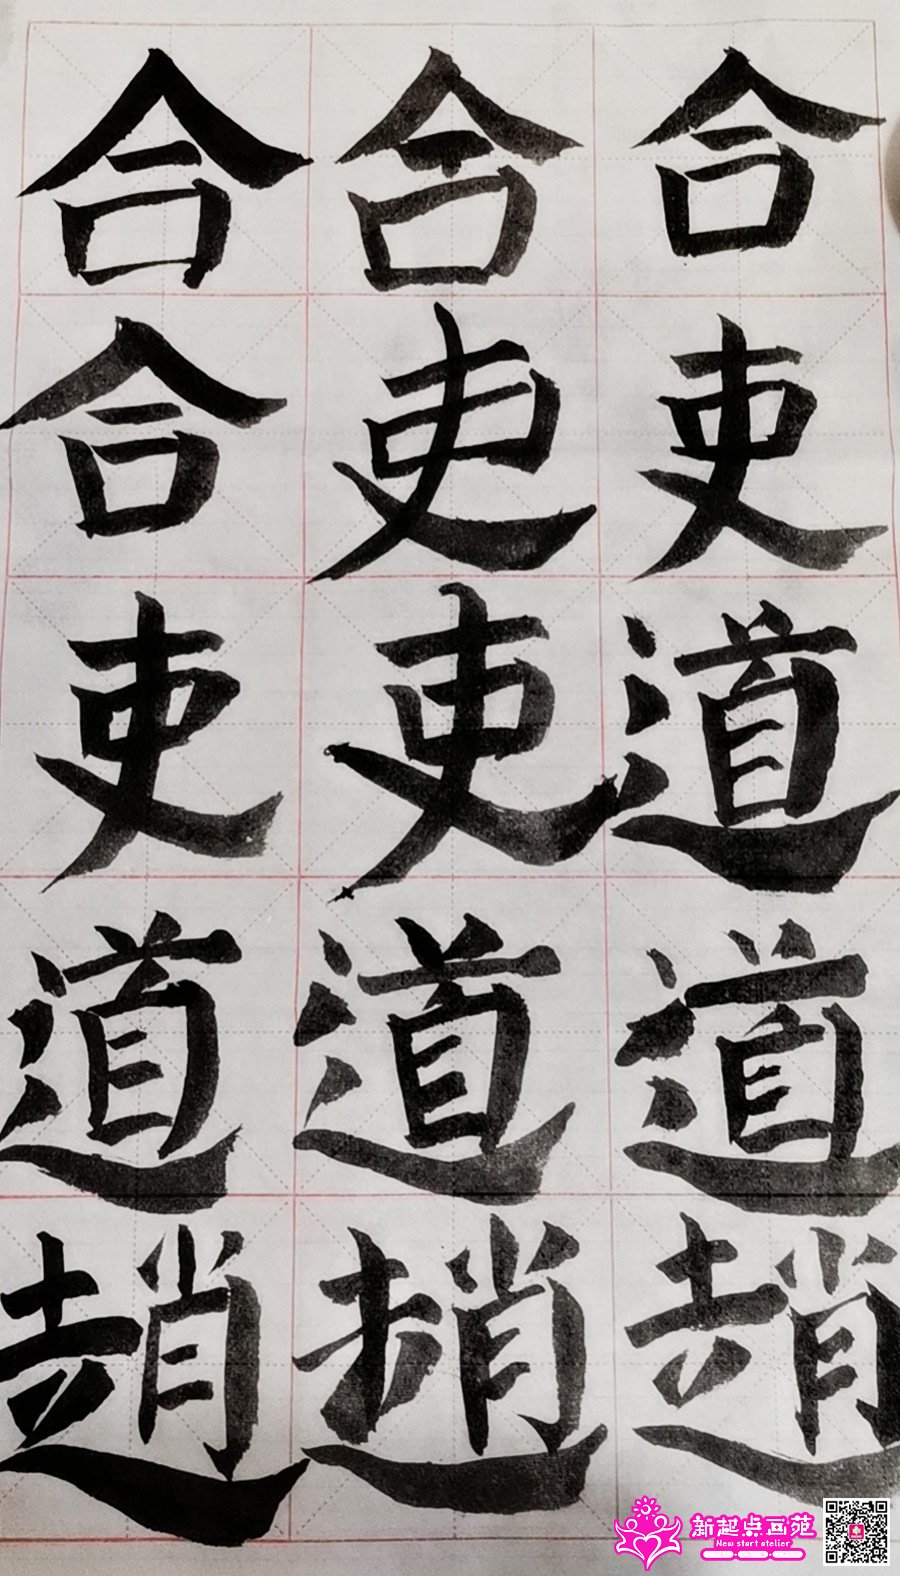 合合合
合吏吏
吏吏道
道道道
趙趙趙
新起点画苑
New start atelier